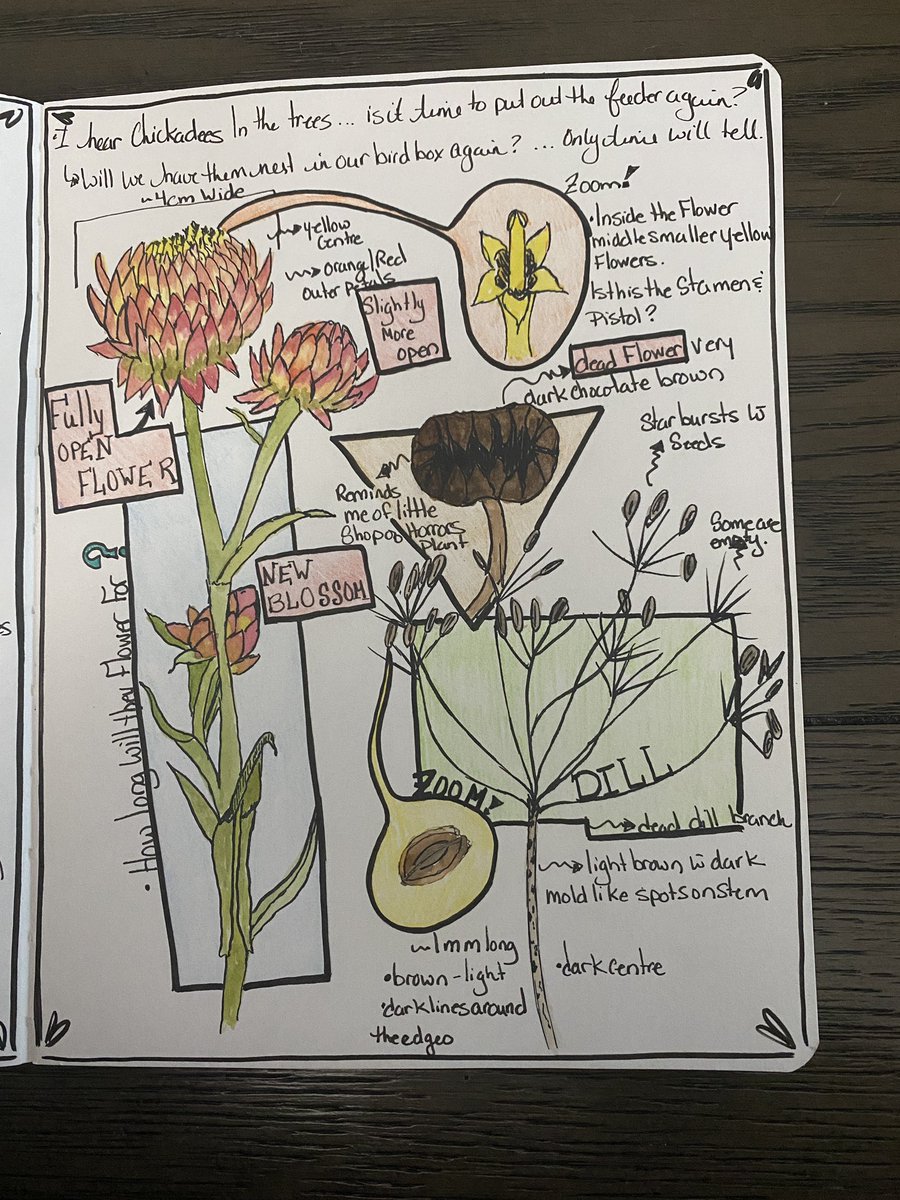 • I hear Chickadees In the trees... is it time to put out the feeder again?
↳ Will we have them nest in our bird box again? ... Only time will tell.
~4cm Wide
Zoom!
yellow
Centre
orange/Red
Outer Petals
• Inside the Flower
middle smaller yellow
Flowers.
Is this the Stamen &
Pistol?
Slightly
More
open
dead Flower very
dark chocolate brown
Fully
OPEN
FLOWER
Starbursts w̄
Seeds
Reminds
me of little
Shop oo Horrors
Plant
Some are
empty.
NEW
BLOSSOM
• How long will they Flower For?
ZOOM!
DILL
dead dill branch
light brown w̄ dark
mold like spots on stem
~1mm long
• brown-light
• dark lines around
the edges
• dark centre